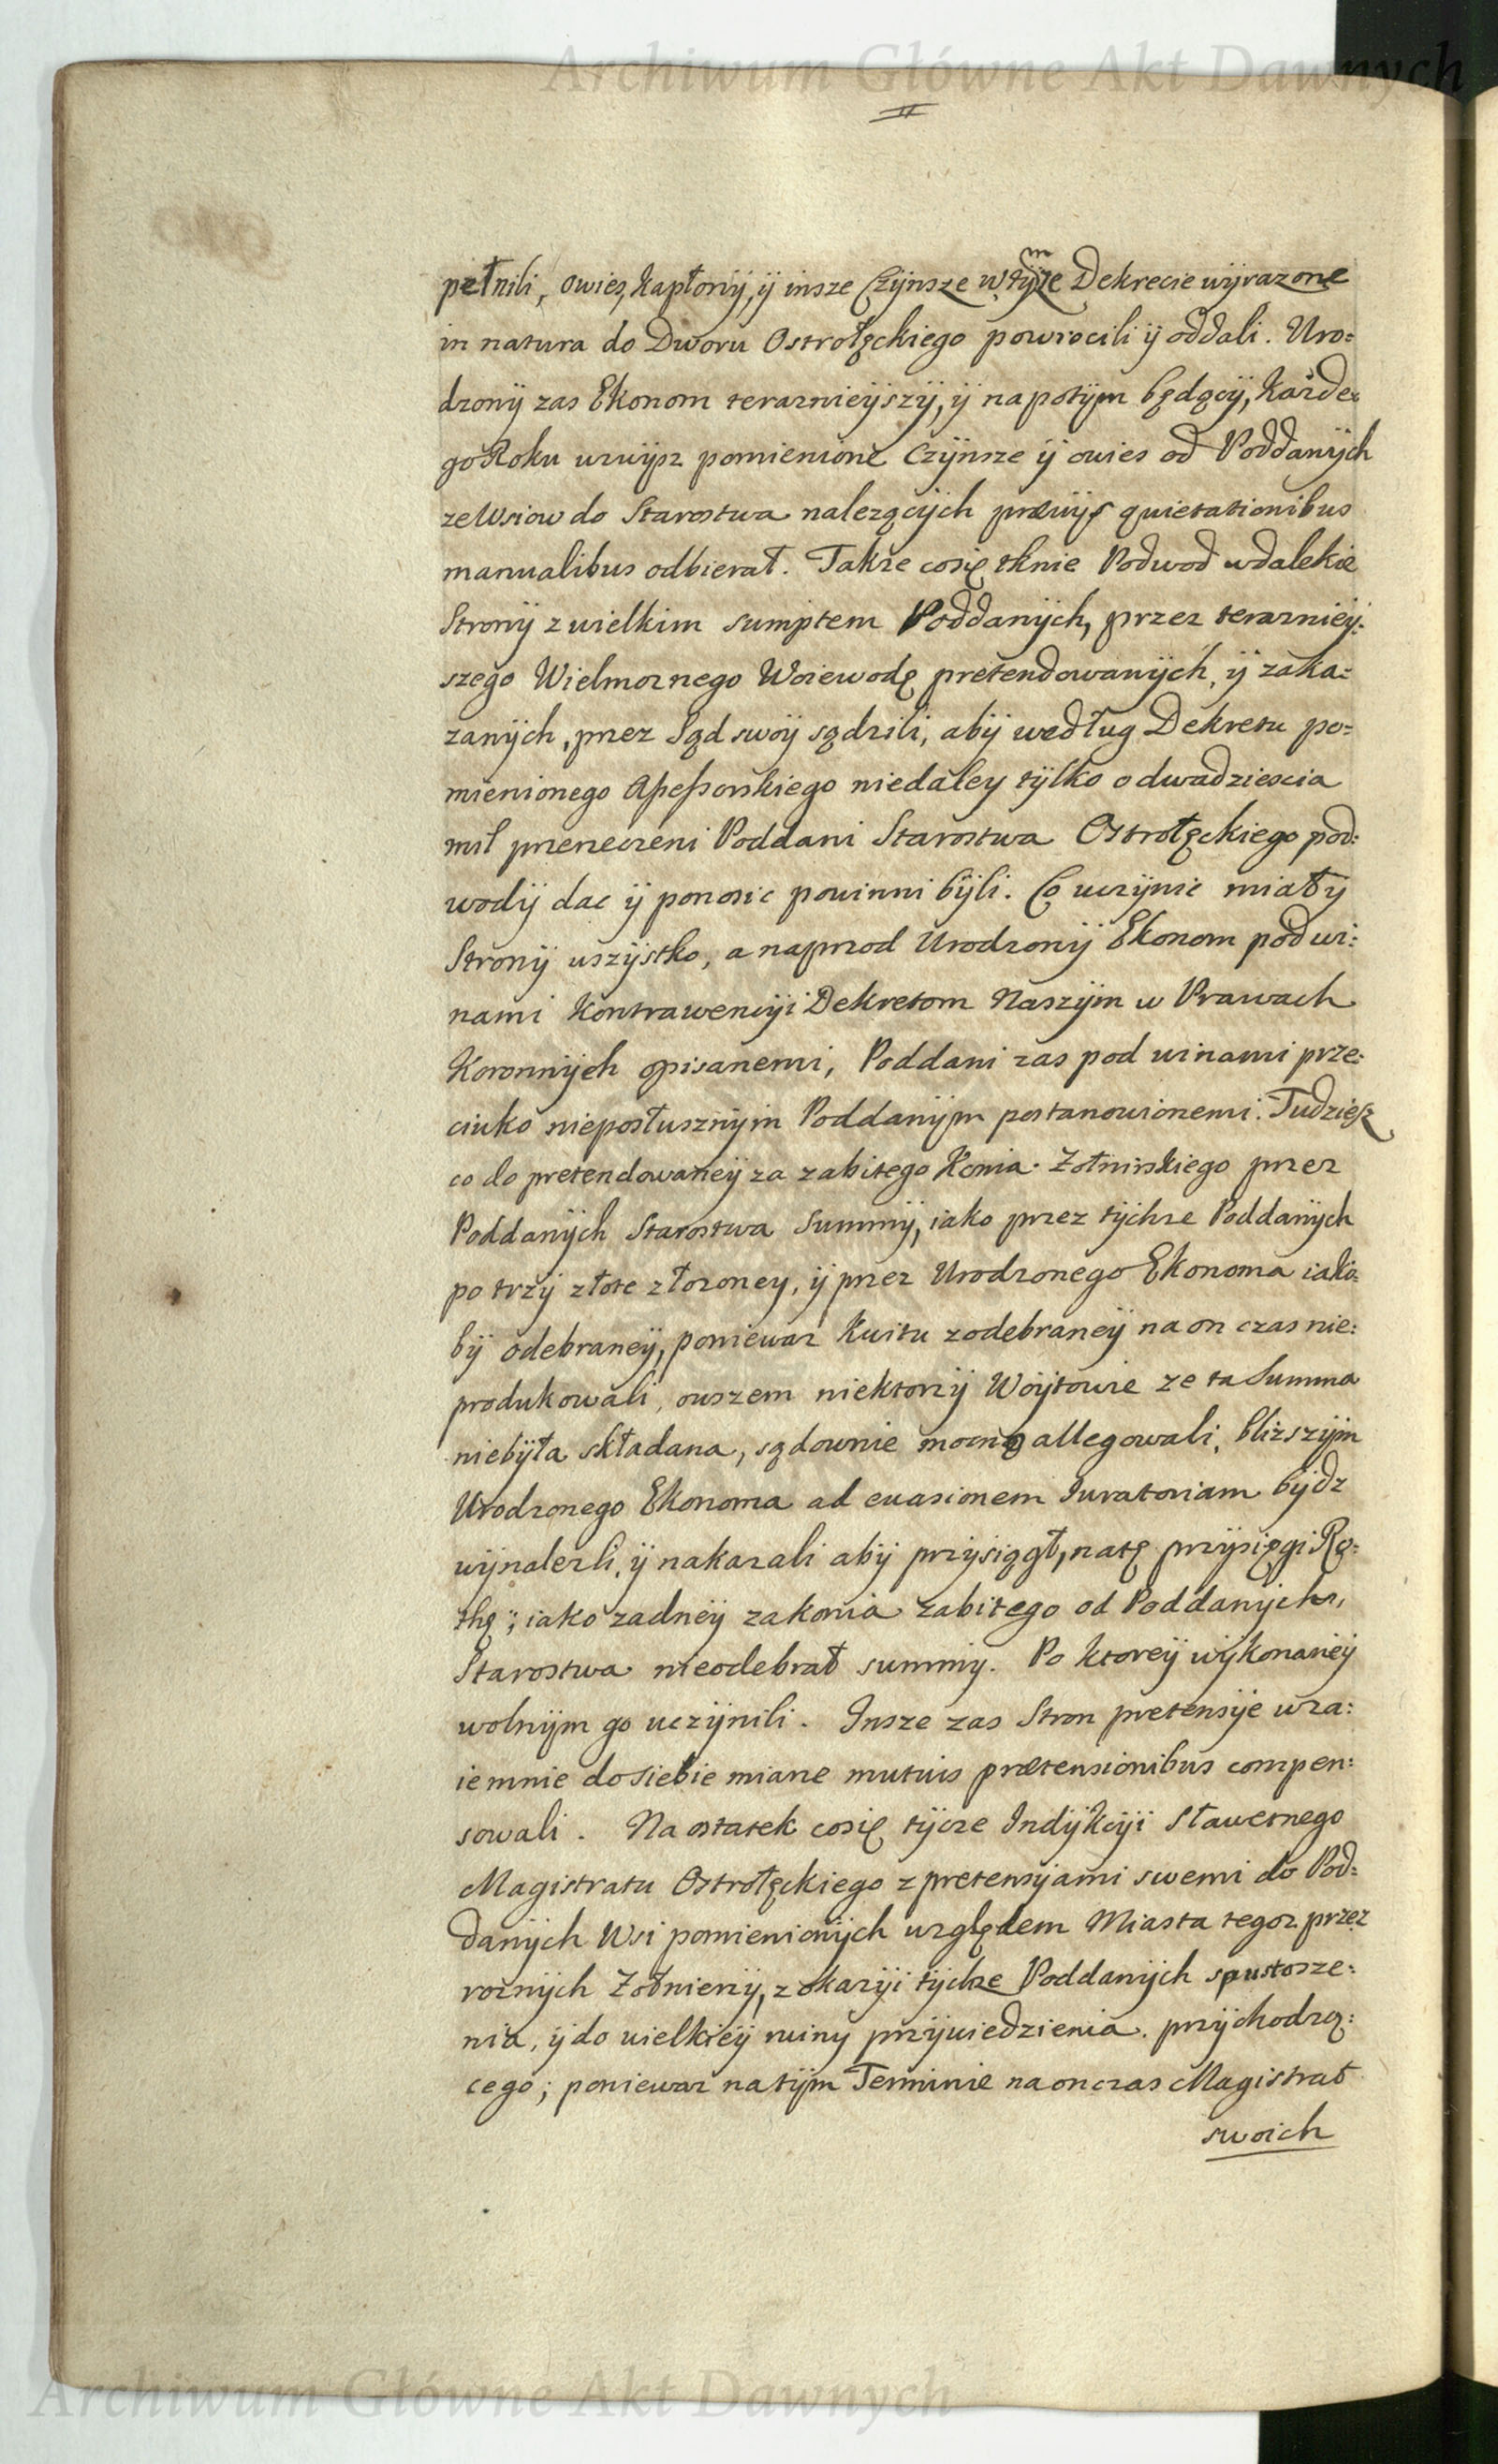 Archiwum Główne Akt Dawnych
II
pełnili, owies, kapłony, ÿ insze Czÿnsze wtÿmze Dekrecie wÿrazone
in natura do Dworu Ostrołęckiego powrocili ÿ oddali. Uro=
dzonÿ zas Ekonom terazniejszÿ, ÿ napotÿm będącÿ, Kazde=
go Roku wzwÿsz pomienione Czÿnsze ÿ owies od Poddanÿch
zeWsiow do Starostwa nalezącÿch prævÿs quietationibus
manualibus odbierał. Takze cosię tknie Podwod wdalekie
Stronÿ zwielkim sumptem Poddanÿch, przez terazniey=
szego Wielmoznego Woiewodę pretendowanÿch, ÿ zaka=
zanÿch, przez Sąd swoÿ sądzili, abÿ według Dekretu po=
mienionego Assessorskiego niedaley tÿlko o dwadziescia
mil przerzeczeni Poddani Starostwa Ostrołęckiego pod=
wodÿ dac ÿ ponosic powinni bÿli. Co uczÿnic miałÿ
Stronÿ wszÿstko, a naprzod Urodzonÿ Ekonom pod wi=
nami Kontrawencÿi Dekretom Naszÿm w Prawach
Koronnÿch opisanemi, Poddani zas pod winami prze=
ciwko nieposłusznÿm Poddanÿm postanowionemi. Tudziesz
co do pretendowaneÿ za zabitego Konia Zołnirskiego przez
Poddanÿch Starostwa Summÿ, iako przez tÿchze Poddanÿch
po trzÿ złote złozoney, ÿ przez Urodzonego Ekonoma iako=
bÿ odebraneÿ, poniewaz Kwitu zodebraneÿ na on czas nie=
produkowali, owszem niektorzÿ Woÿtowie ze ta Summa
niebÿła składana, sądownie mocno allegowali, blizszÿm
Urodzonego Ekonoma ad evasionem Iuratoriam bÿdz
wÿnalezli, ÿ nakazali abÿ przÿsiągł, natę przÿsięgi Ro=
thę; iako zadneÿ zakonia zabitego od Poddanÿch,
Starostwa nieodebrał summÿ. Po ktoreÿ wÿkonaneÿ
wolnÿm go uczÿnili. Insze zas Stron pretensÿe wza=
iemnie dosiebie miane mutuis prætensionibus compen=
sowali. Na ostatek cosię tÿcze Indÿkcÿi Sławetnego
Magistratu Ostrołęckiego zpretensÿami swemi do Pod=
danÿch Wsi pomienionÿch względem Miasta tegoz przez
roznÿch Zołnierzÿ, zokazÿi tÿchze Poddanÿch spustosze=
nia, ÿ do wielkieÿ ruiny przÿwiedzienia przÿchodzą=
cego; poniewaz natÿm Terminie naonczas Magistrat
swoich
Archiwum Główne Akt Dawnych